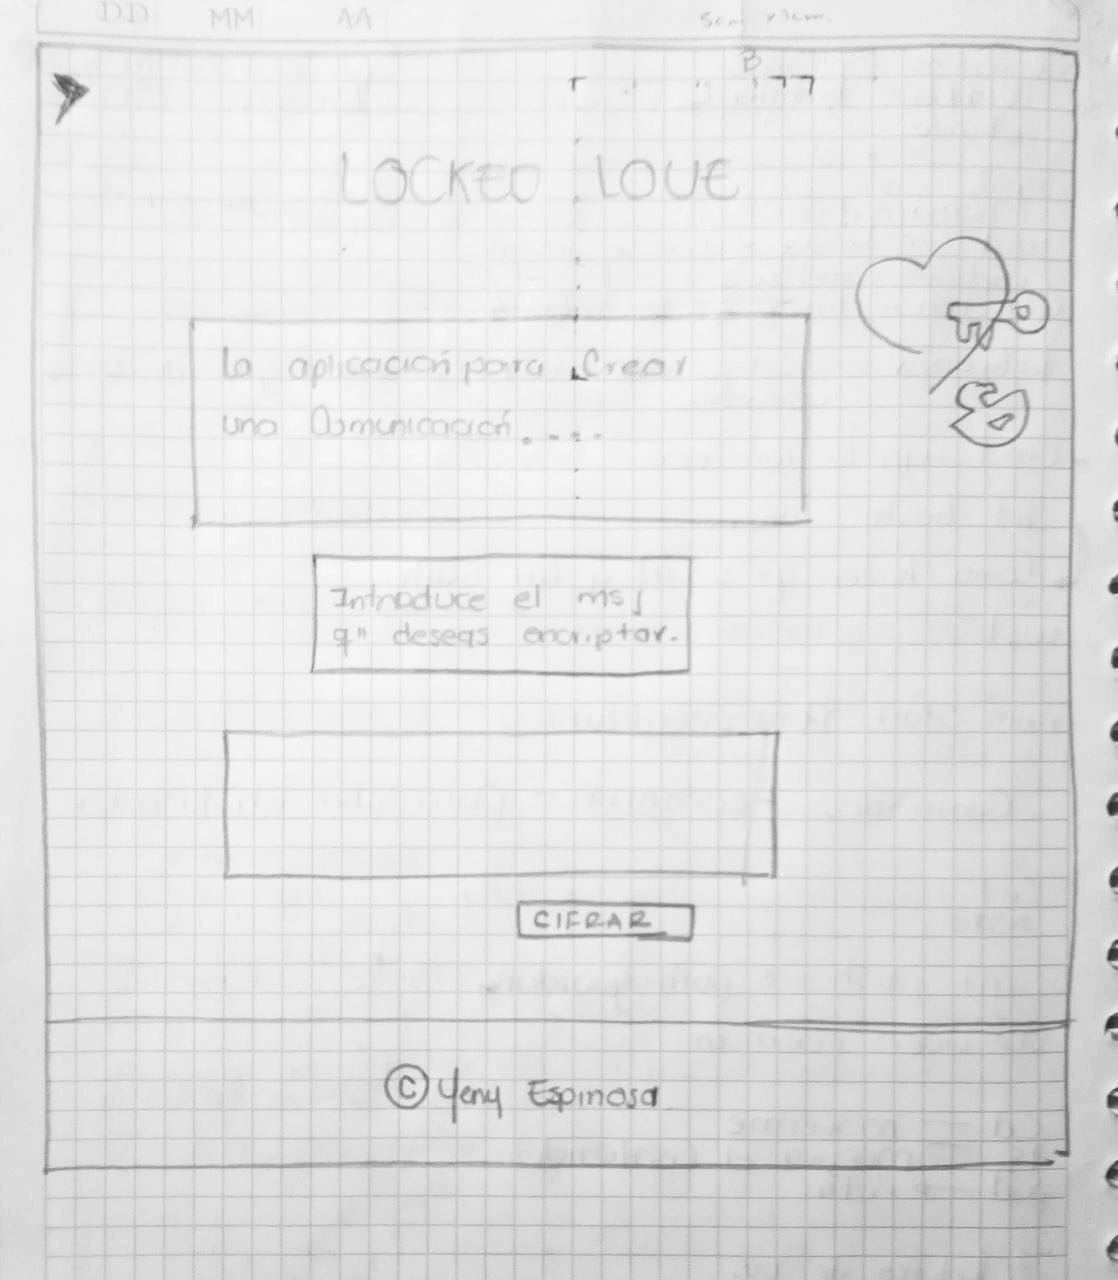 DD MM AA
B
LOCKED LOVE
la aplicación para Crear
una Comunicación.----
Introduce el msj
q" deseas encriptar.
CIFRAR
© Yeny Espinosa